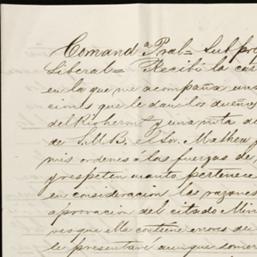 Comand.a Pral= Sub pre
Liberal= Recibí la car
en la que me acompaña una
ciones que le dan los dueños
del Righeron, y una nota de
de S.M.B. el Sor. Mathew
mis ordenes a las fuerzas de
y respeten cuanto pertenece
en consideracion las razones
aprovacion del citado Min
veo que ella contiene errores de
le presentare aunque somer